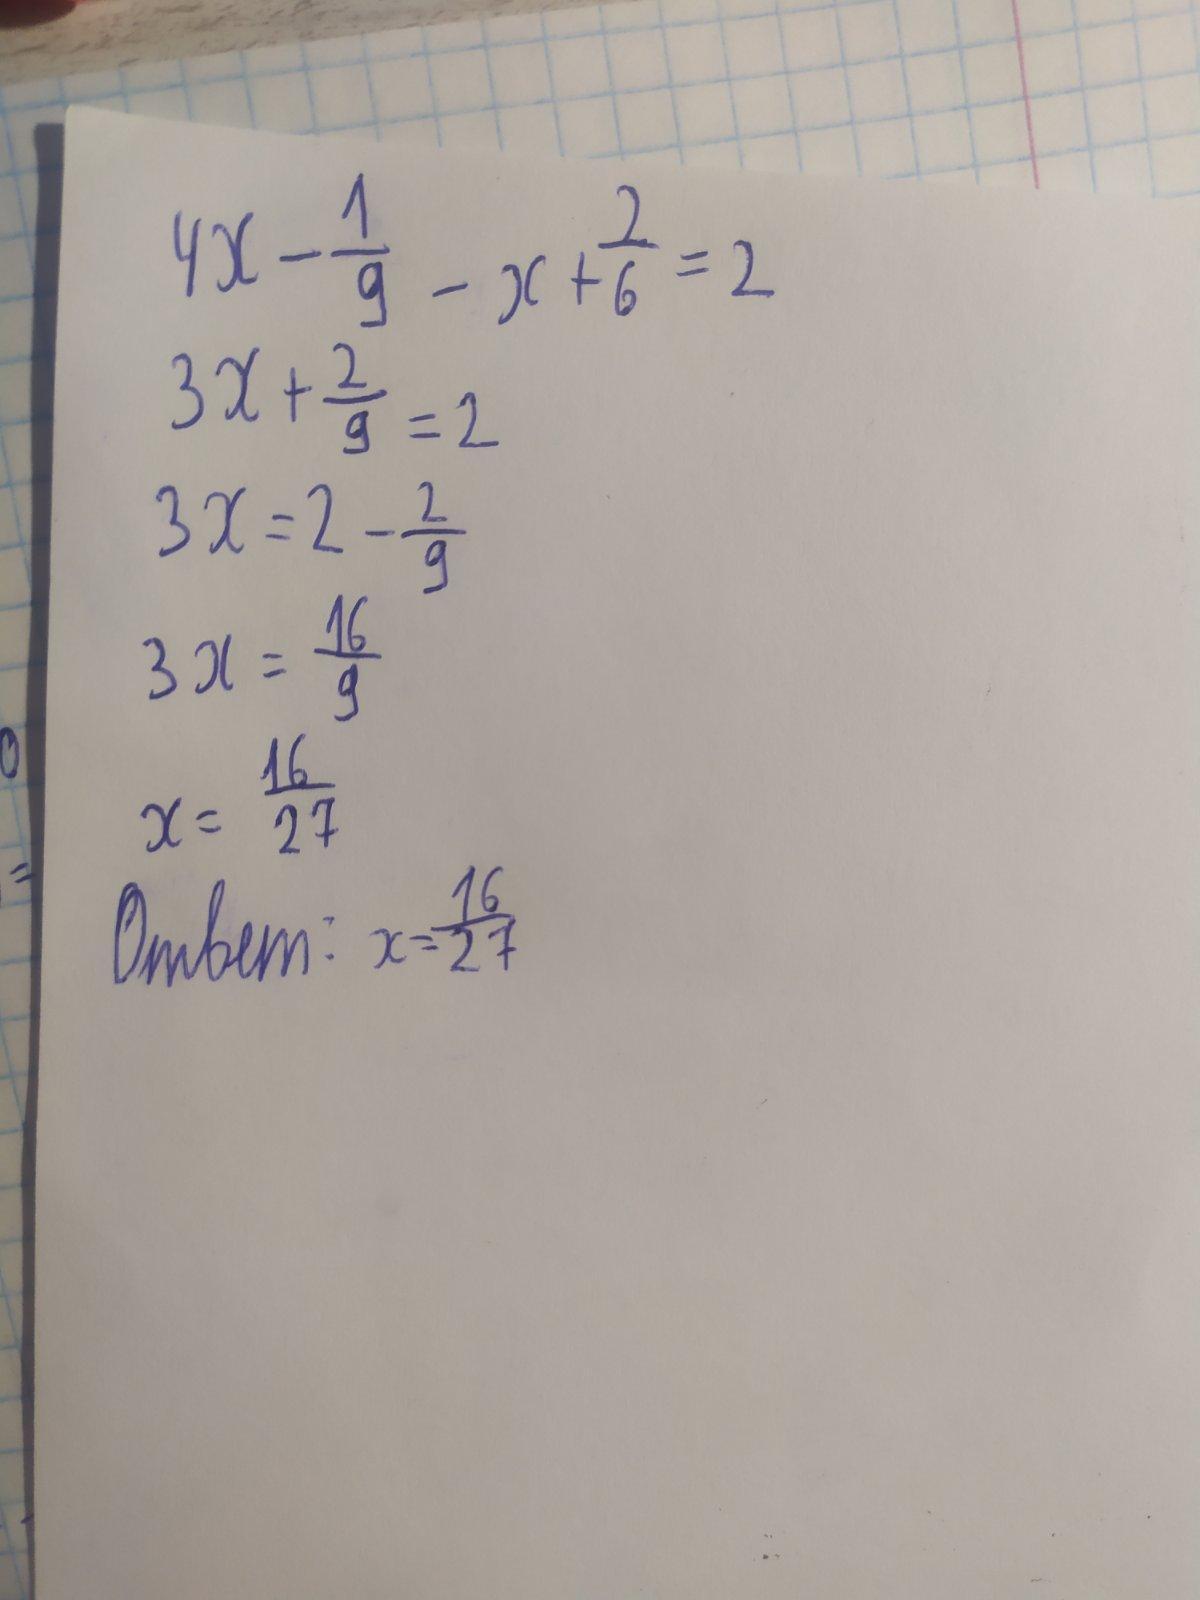 4x - 1/9 - x + 2/6 = 2
3x + 2/9 = 2
3x = 2 - 2/9
3x = 16/9
x = 16/27
Ответ: x = 16/27